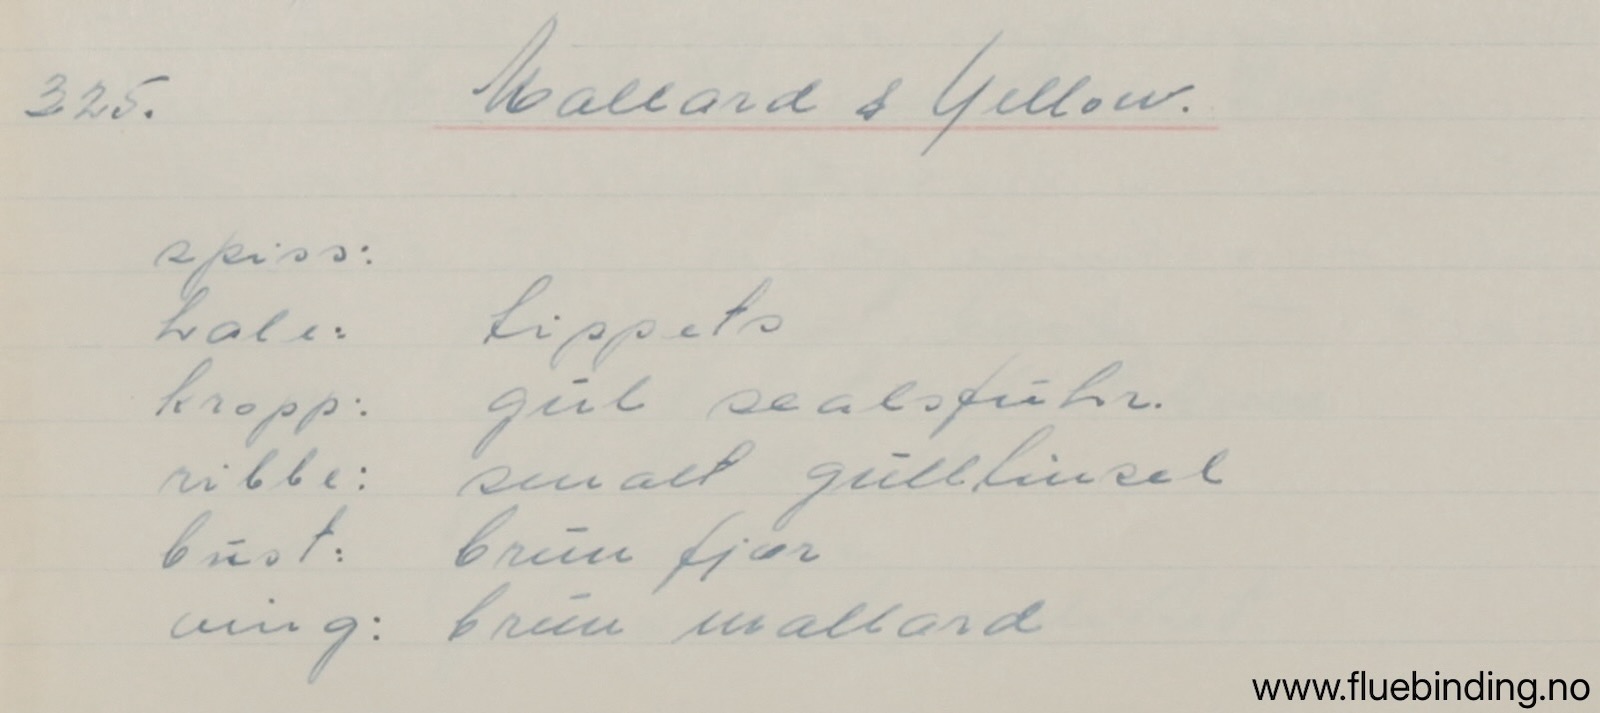 325. Mallard & Yellow.
spiss:
hale: tippets
kropp: gul sealsfuhr.
ribbe: smalt gulltinsel
bust: brun fjær
ving: brun mallard
www.fluebinding.no